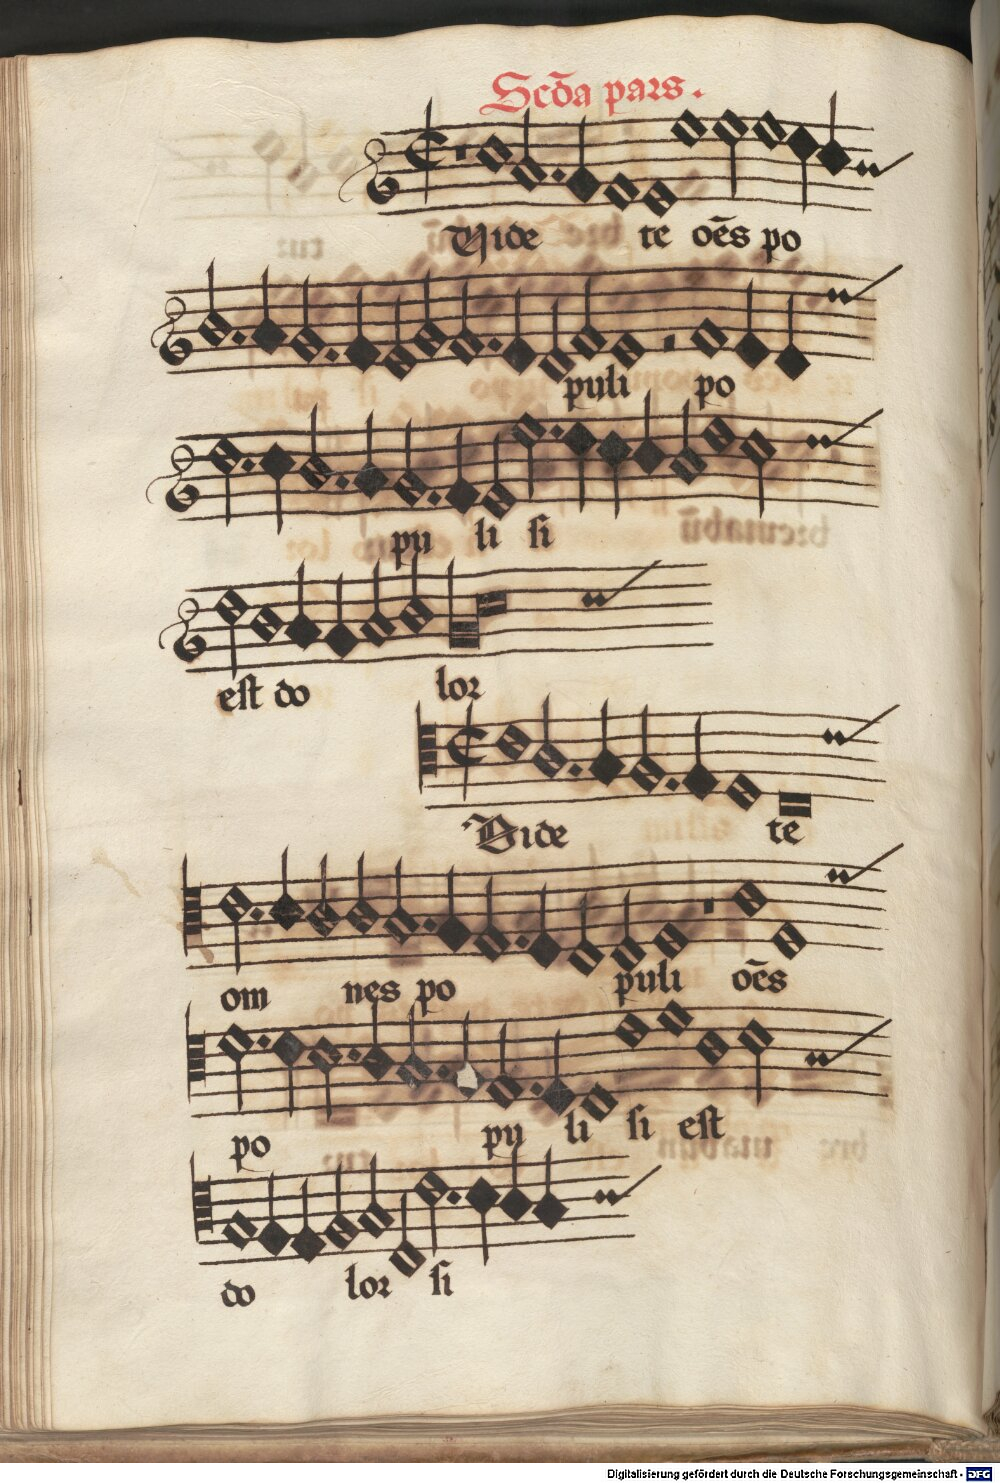 Scd̄a pars.
Vide te oēs po
puli po
pu li si
est do lor
Vide te
om nes po puli oēs
po pu li si est
do lor si
Digitalisierung gefördert durch die Deutsche Forschungsgemeinschaft - DFG